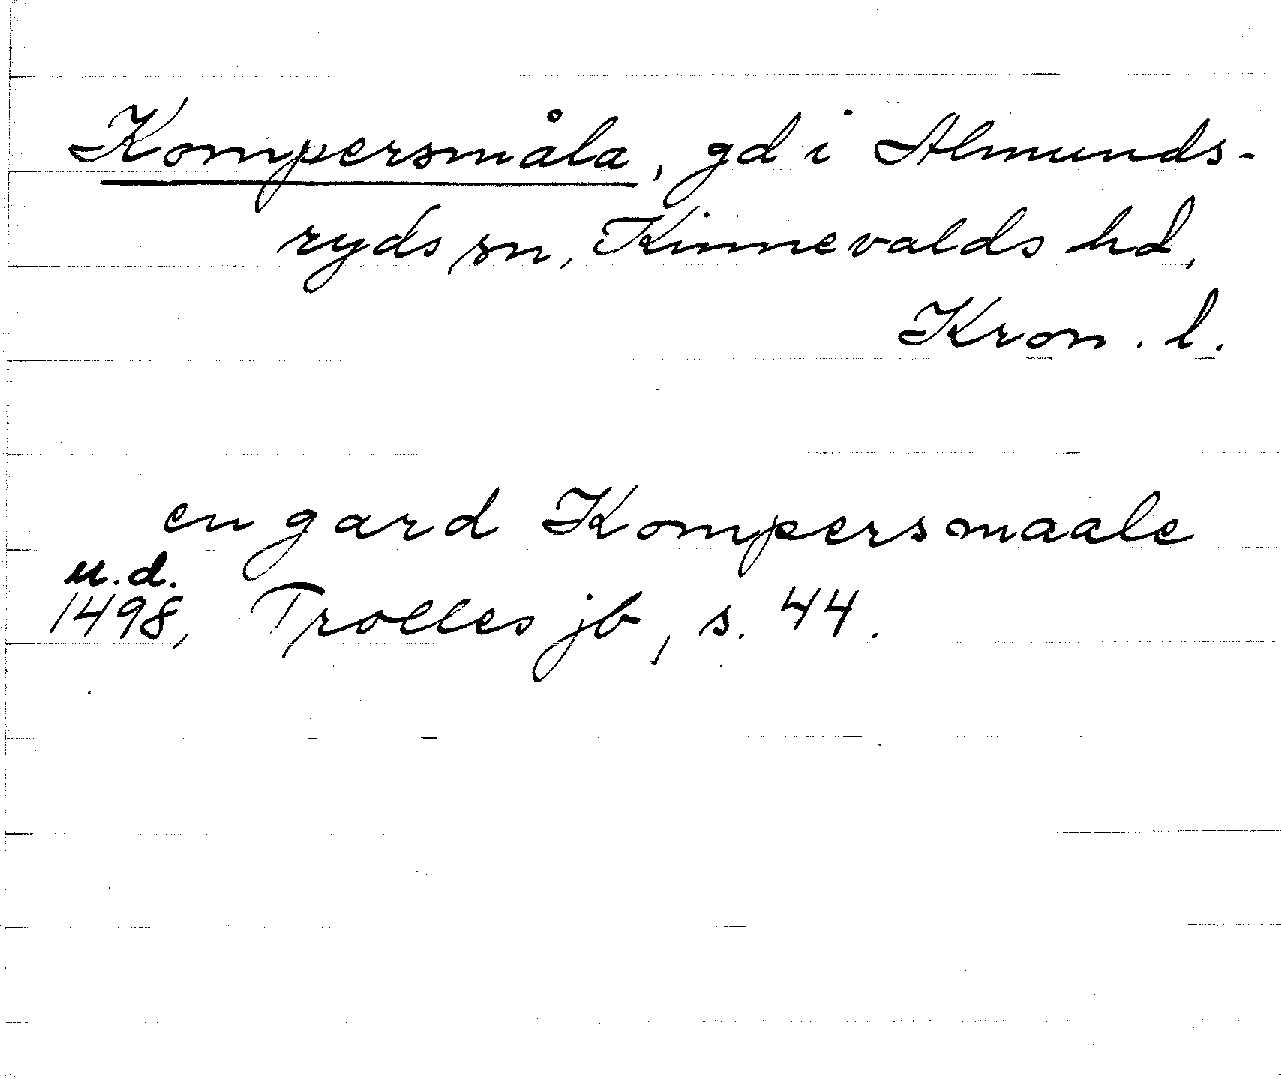 Kompersmåla, gd i Almunds-
ryds sn, Kinnevalds hd,
Kron. l.
en gard Kompersmaale
u.d.
1498, Trolles jb, s. 44.